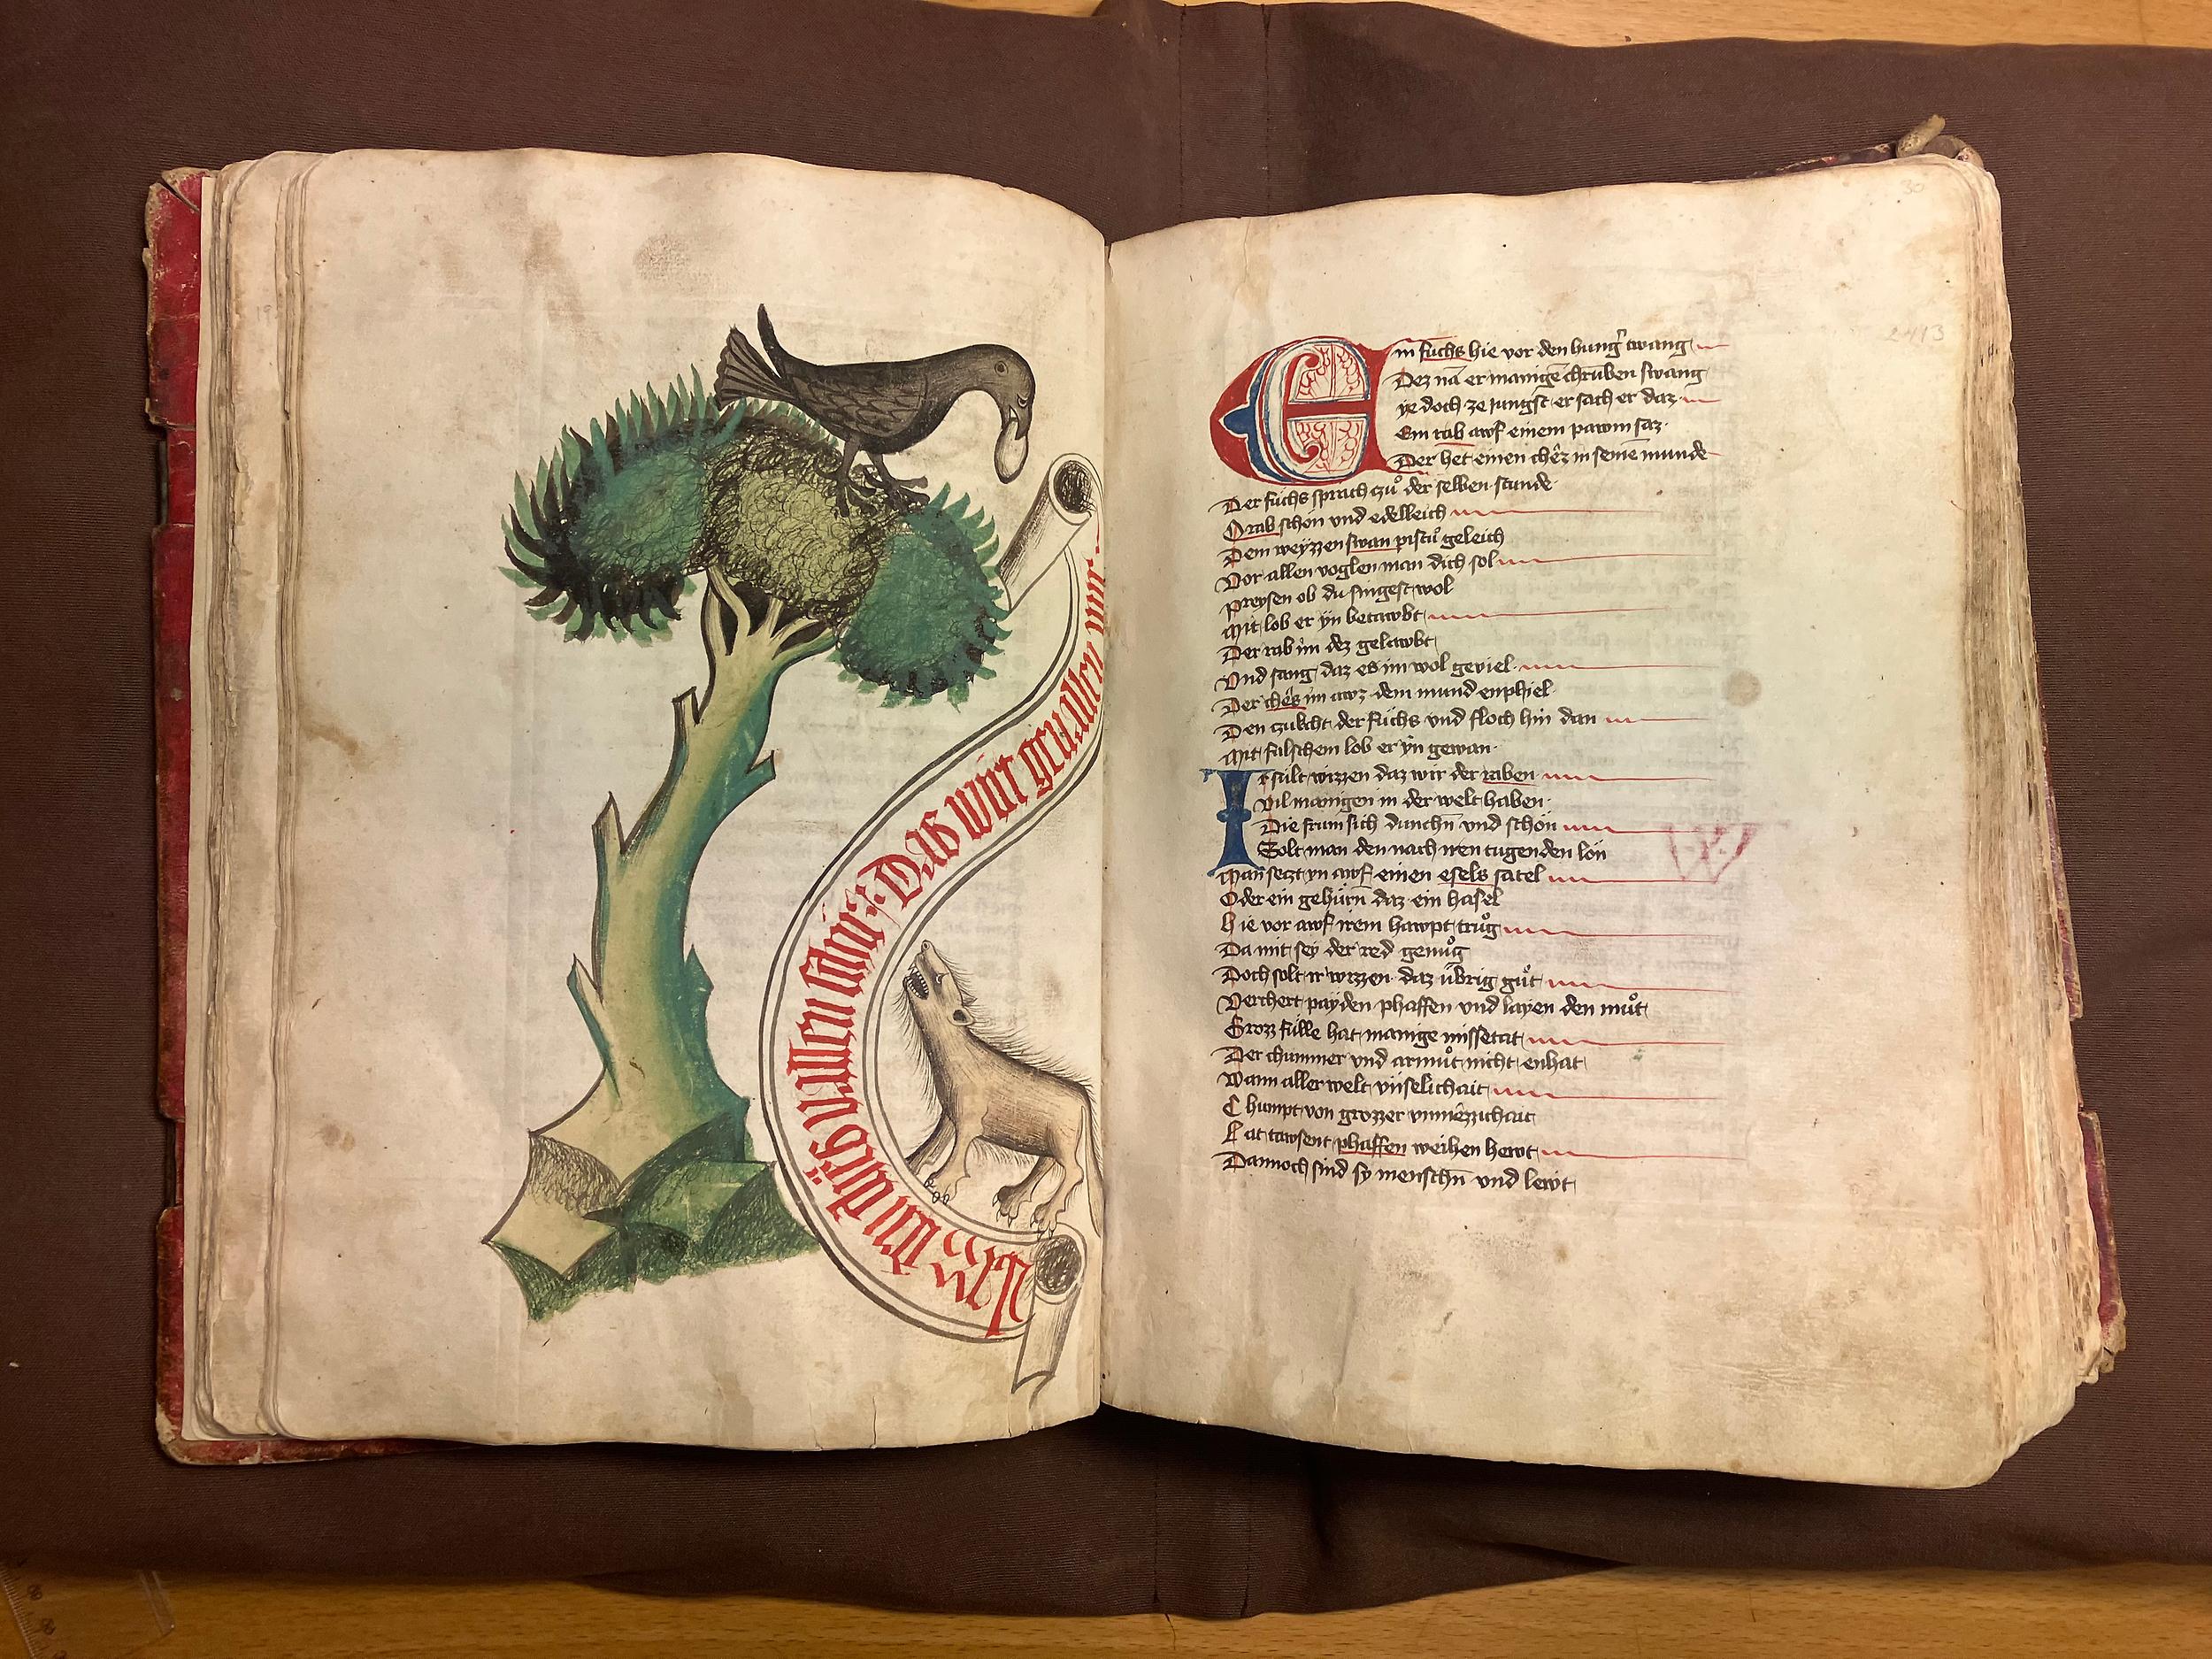 Das wirt geuallen mir
Ein fuchs hie vor den hung͛ twang
Dez nā er manigē chruben swang
ye doch ze jungst er sach er daz
Ein rab awf einem pawm saz
Der het einen chêz in seinē munde
Der fuchs sprach zuͦ der selben stunde
O rab schön und edelleich
Dem weyzzen swan pistu geleich
Vor allen voglen man dich sol
Preysen ob du singest wol
Mit lob er yn betawbt
Der rab im dez gelawbt
Und sang daz es im wol geviel
Der chês im awz dem mund enphiel
Den zukcht der fuchs und floch hin dan
Mit falschem lob er yn gewan
Ir sült wizzen daz wir der raben
Vil manigen in der welt haben
Die frum sich dunchn̄ und schön
Solt man den nach iren tugenden lön
Man seczt yn awf einen esels satel
Oder ein gehürn̄ daz ein hasel
Hie vor awf irem hawpt truͦg
Da mit sey der red genuͦg
Doch solt ir wizzen daz übrig guͦt
Verchert payden phaffen und layen den muͦt
Grozz fülle hat manige missetat
Der chummer und armuͦt nicht enhat
Wann aller welt vnselichait
Chumpt von grozzer vnmêzzichait
Lat tawsent phaffen weihen hewt
Dannoch sind sy menschn̄ und lewt
30
2413